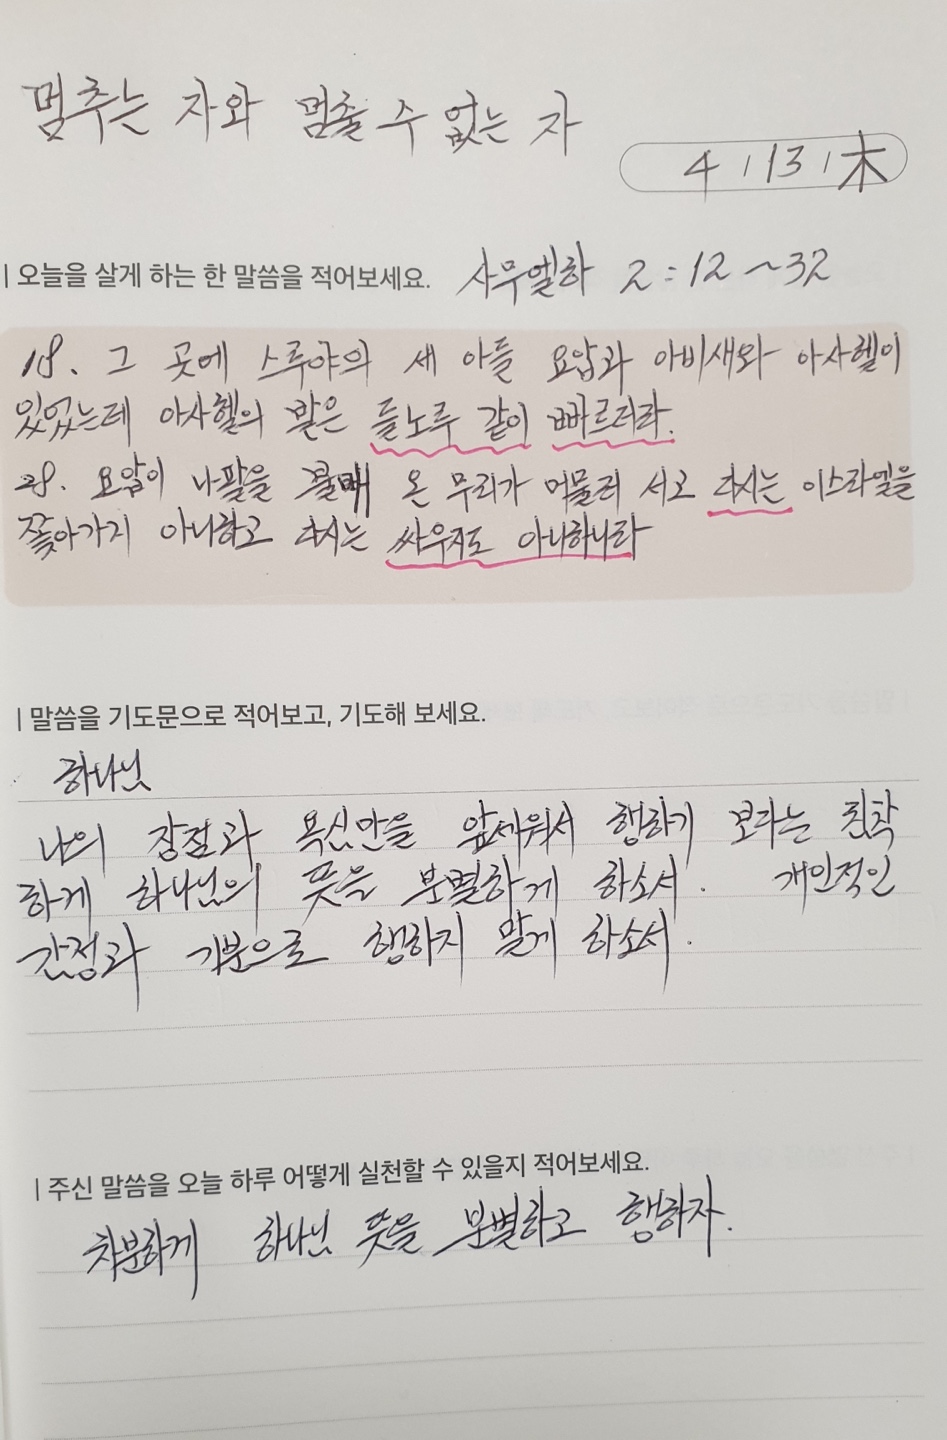 멈추는 자와 멈출 수 없는 자
4 / 13 / 木
| 오늘을 살게 하는 한 말씀을 적어보세요. 사무엘하 2:12~32
18. 그 곳에 스루야의 세 아들 요압과 아비새와 아사헬이
있었는데 아사헬의 발은 들노루 같이 빠르더라.
28. 요압이 나팔을 불매 온 무리가 머물러 서고 다시는 이스라엘을
쫓아가지 아니하고 다시는 싸우지도 아니하니라
| 말씀을 기도문으로 적어보고, 기도해 보세요.
하나님
나의 장점과 욕심만을 앞세워서 행하기 보다는 침착
하게 하나님의 뜻을 분별하게 하소서. 개인적인
감정과 기분으로 행하지 말게 하소서.
| 주신 말씀을 오늘 하루 어떻게 실천할 수 있을지 적어보세요.
차분하게 하나님 뜻을 분별하고 행하자.